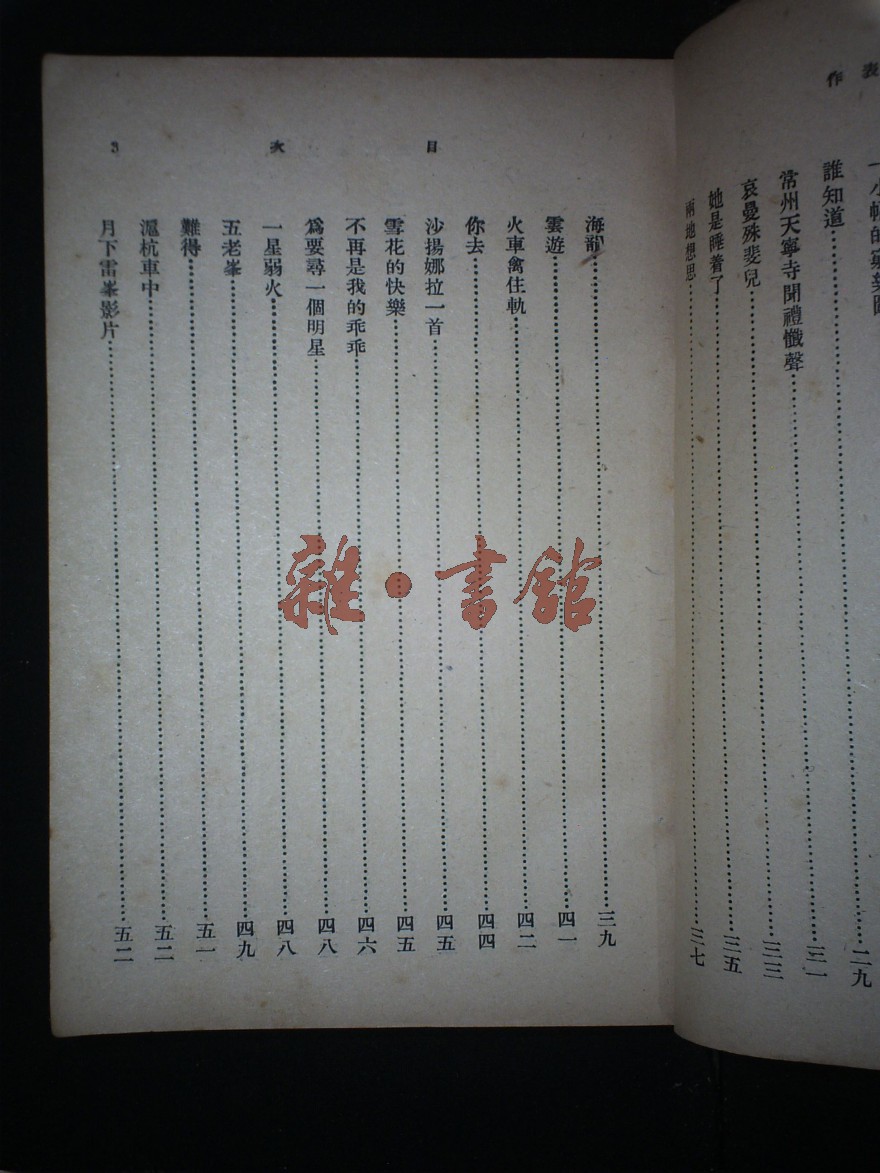 表作
誰知道……二九
常州天寧寺聞禮懺聲……三一
哀曼殊斐兒……三三
她是睡着了……三五
兩地想思……三七
目次 3
海韻……三九
雲遊……四一
火車禽住軌……四二
你去……四四
沙揚娜拉一首……四五
雪花的快樂……四五
不再是我的乖乖……四六
爲要尋一個明星……四八
一星弱火……四八
五老峯……四九
難得……五一
滬杭車中……五二
月下雷峯影片……五二
雜·書館